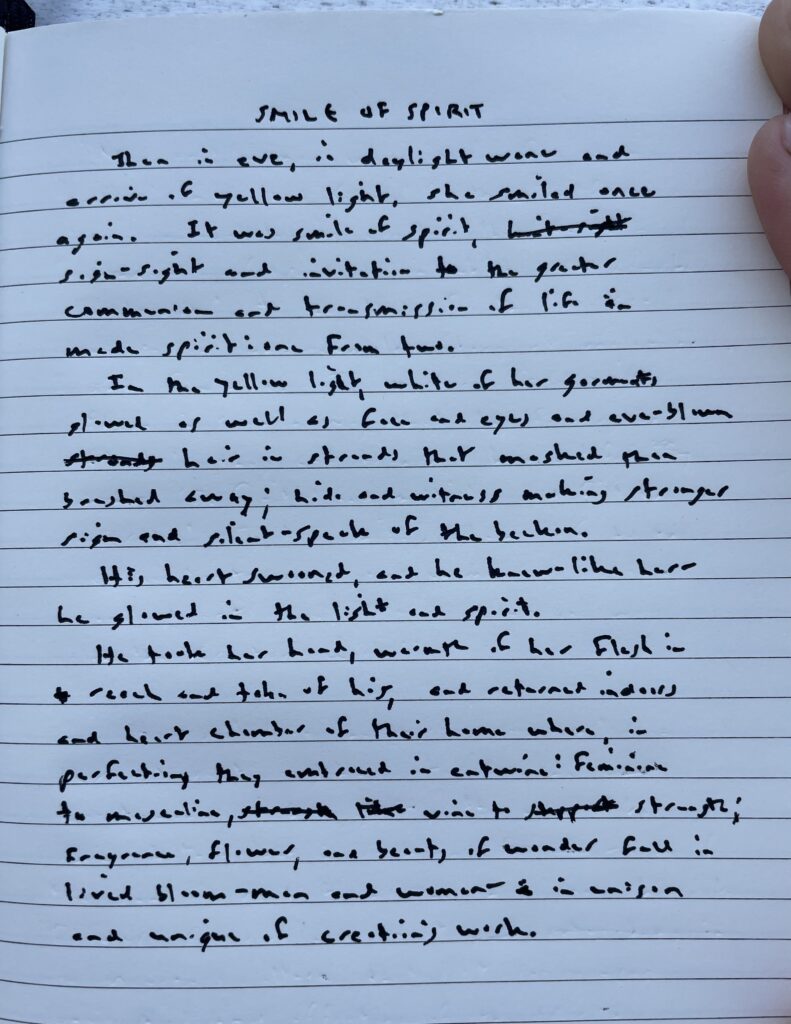 SMILE OF SPIRIT
Then in eve, in daylight wane and
arrive of yellow light, she smiled once
again. It was smile of spirit,
sign-sight and invitation to the greater
communion and transmission of life in
made spirit: one from two.
In the yellow light, white of her garments
glowed as well as face and eyes and eve-blown
hair in strands that masked then
brushed away; hide and witness making stronger
sign and silent-speak of the beckon.
His heart swooned, and he knew-like hers
he glowed in the light and spirit.
He took her hand, warmth of her flesh in
reach and take of his, and returned indoors
and heart chamber of their home where, in
perfecting they embraced in entwine: feminine
to masculine, vine to strength;
fragrance, flower, and beauty of wonder full in
lived bloom-man and woman- in unison
and unique of creation's work.